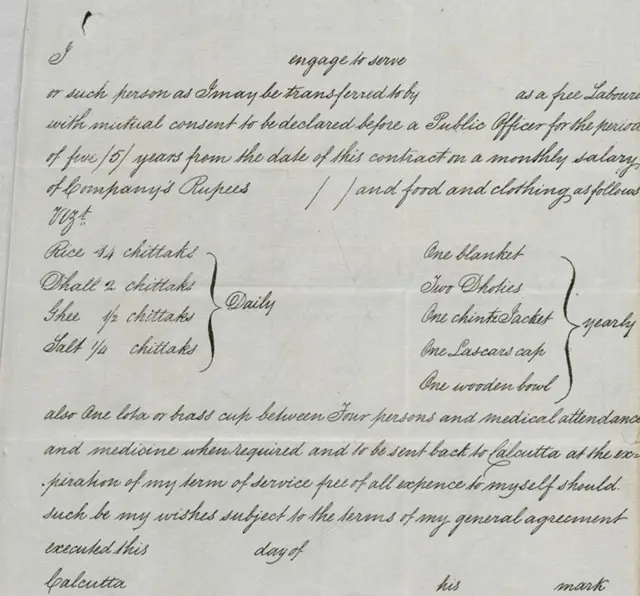 I engage to serve
or such person as I may be transferred to by as a free Laboure
with mutual consent to be declared before a Public Officer for the period
of five /5/ years from the date of this contract on a monthly salary
of Company's Rupees / / and food and clothing as follows
Vizt
Rice 14 chittaks One blanket
Dhall 2 chittaks Two Dhoties
Daily
Ghee 1/2 chittaks One chintz Jacket yearly
Salt 1/4 chittaks One Lascars cap
One wooden bowl
also One lota or brass cup between Four persons and medical attendance
and medicine when required and to be sent back to Calcutta at the ex=
piration of my term of service free of all expence to myself should
such be my wishes subject to the terms of my general agreement
executed this day of
Calcutta his mark